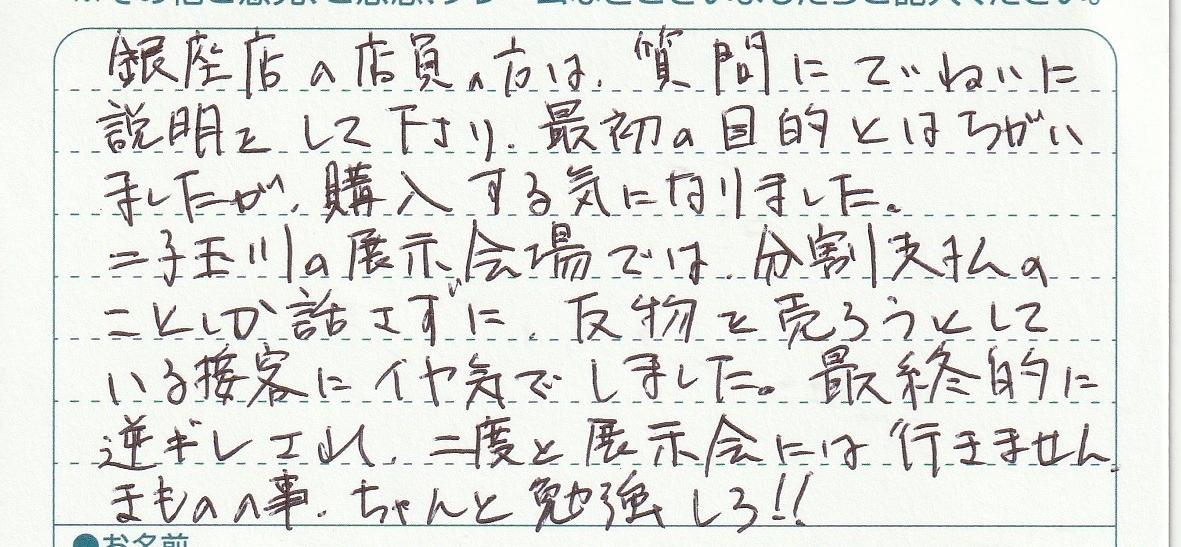 銀座店の店員の方は、質問にていねいに
説明をして下さり、最初の目的とはちがい
ましたが、購入する気になりました。
二子玉川の展示会場では、分割払さんの
ことしか話さずに、反物を売ろうとして
いる接客にイヤ気でしました。最終的に
逆ギレされ、二度と展示会には行きません。
きものの事、ちゃんと勉強しろ!!
●お名前